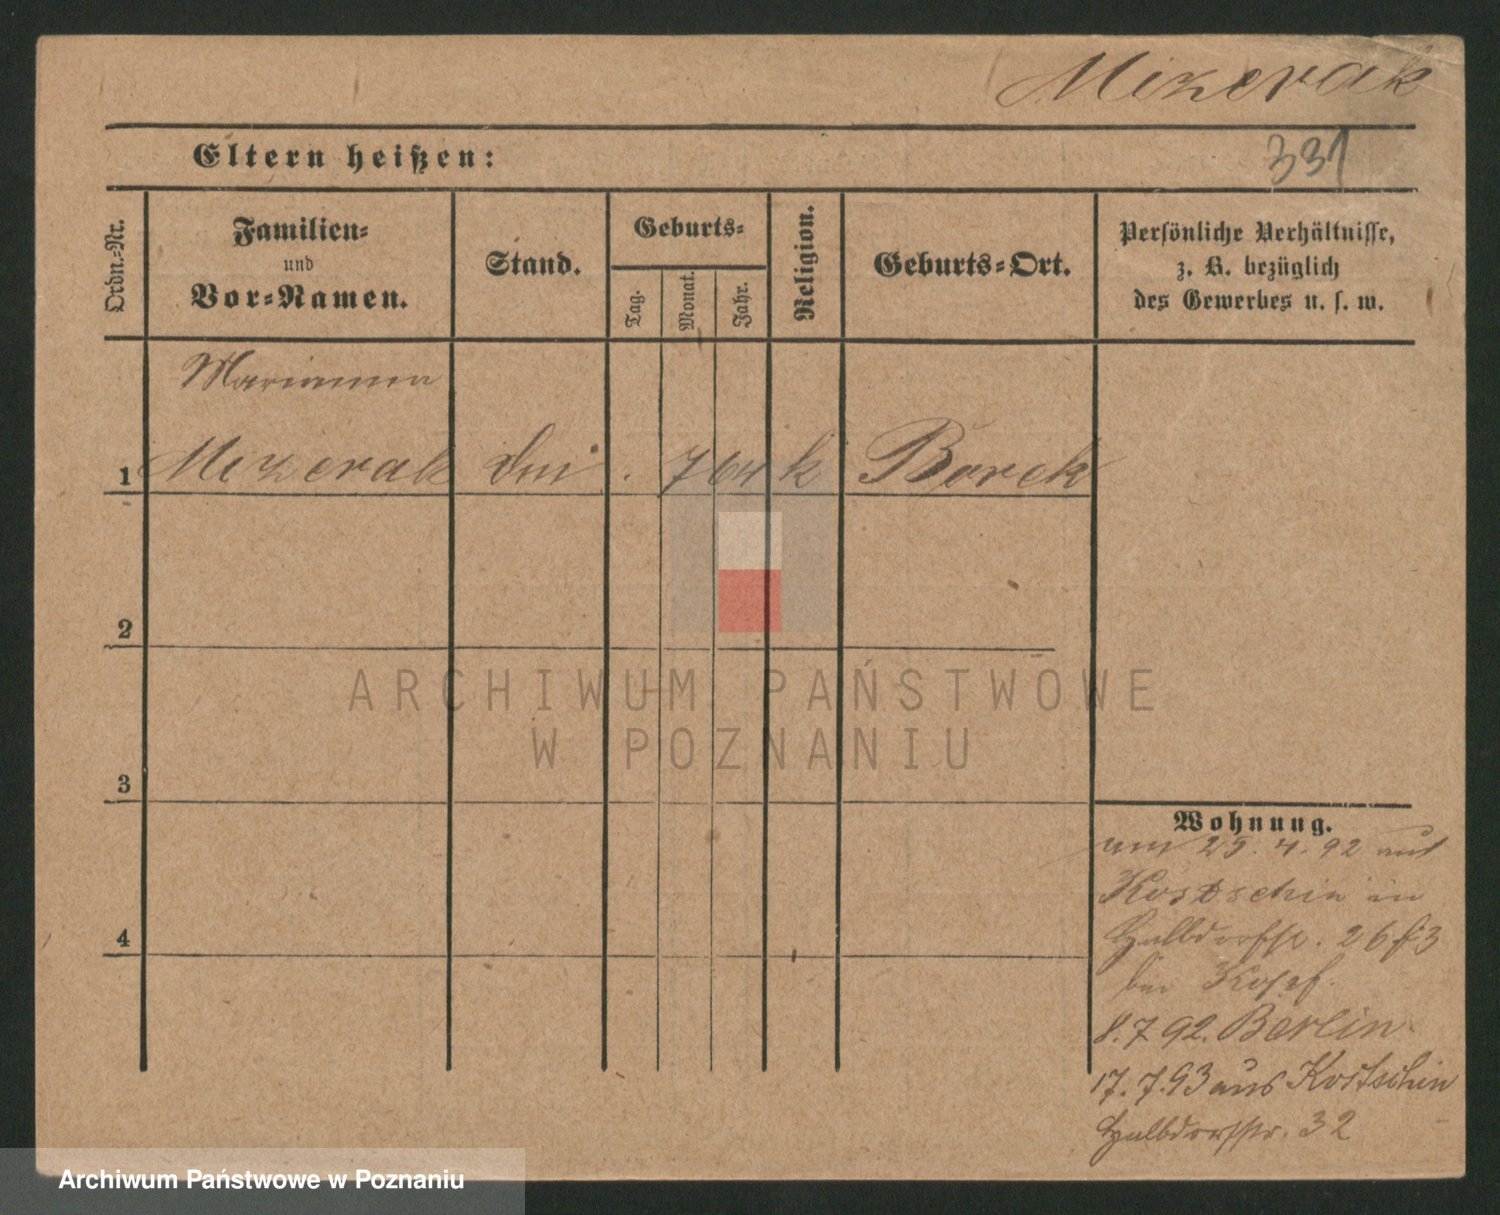 Mizerak
331
Eltern heißen:
Ordn.-Nr.
Familien-
und
Vor-Namen.
Stand.
Geburts-
Tag.
Monat.
Jahr.
Religion.
Geburts-Ort.
Persönliche Verhältnisse,
z. B. bezüglich
des Gewerbes u. s. w.
Marianna
1 Mizerak . 7 64 k Borek
2
ARCHIWUM PAŃSTWOWE
W POZNANIU
3
Wohnung.
25. 4. 92 aus
Kostschin in
Halbdorfstr. 26
bei
4
8. 7 92. Berlin
17. 7. 93 aus Kostschin
Halbdorfstr. 32
Archiwum Państwowe w Poznaniu